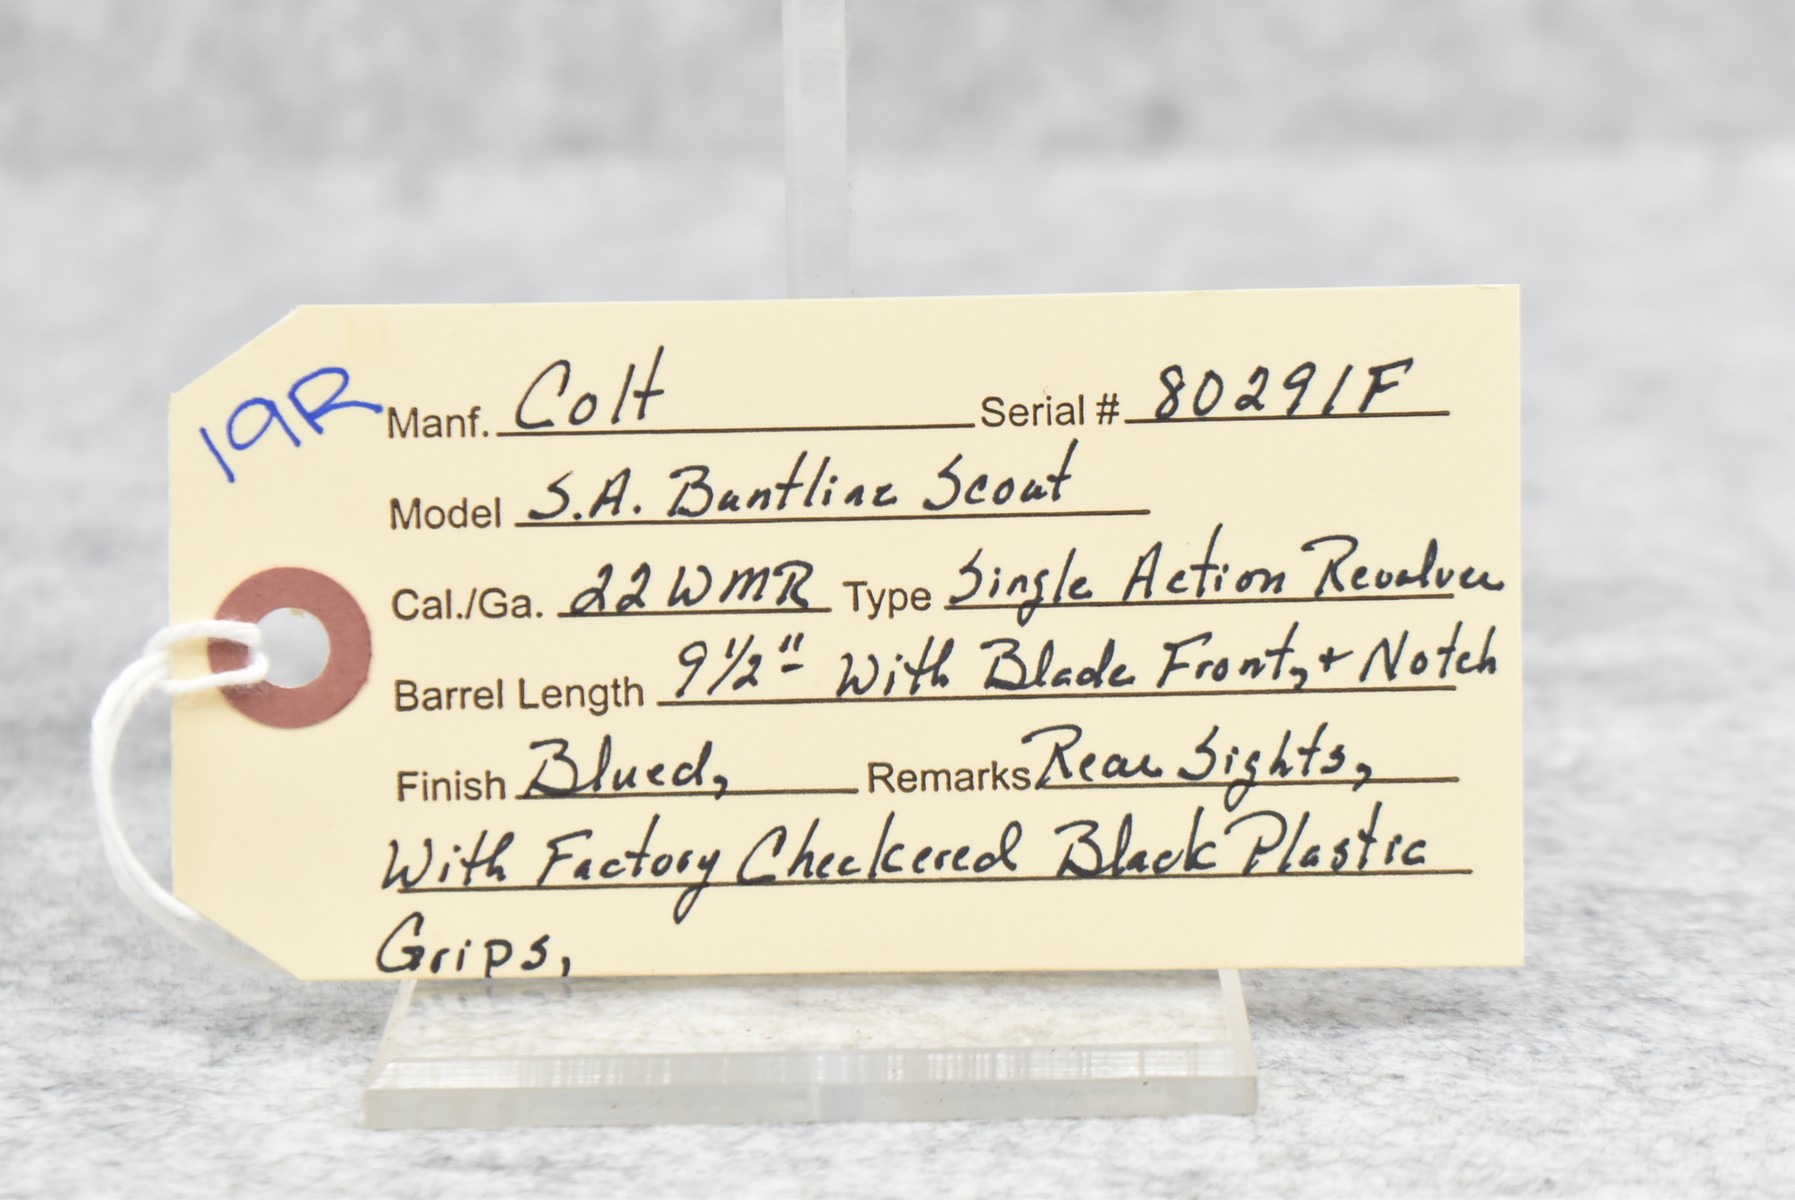 19R
Manf. Colt Serial # 80291F
Model S.A. Buntline Scout
Cal./Ga. 22 WMR Type Single Action Revolver
Barrel Length 9 1/2" - With Blade Front, + Notch
Finish Blued, Remarks Rear Sights,
With Factory Checkered Black Plastic
Grips,